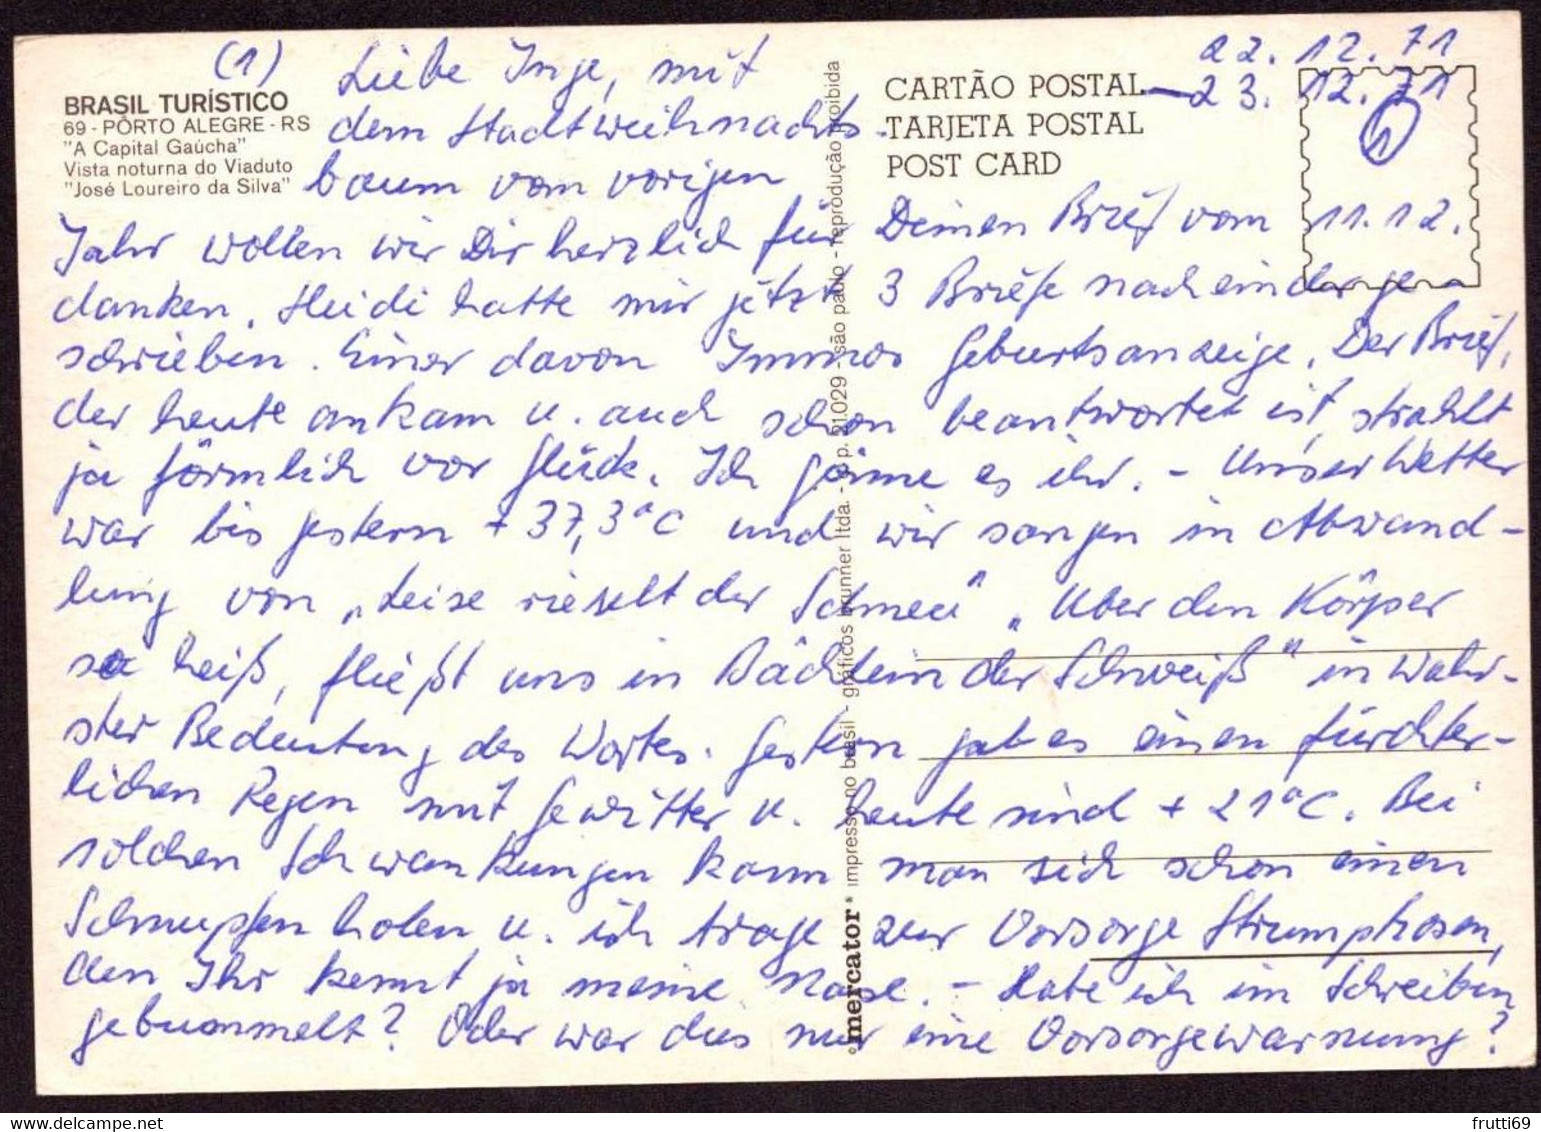 (1)
22.12.71
-23.12.71
BRASIL TURÍSTICO
69 - PÔRTO ALEGRE - RS
"A Capital Gaúcha"
Vista noturna do Viaduto
"José Loureiro da Silva"
CARTÃO POSTAL
TARJETA POSTAL
POST CARD
Liebe Inge, mit
dem Stadtweihnachts-
baum vom vorigen
Jahr wollen wir Dir herzlich für Deinen Brief vom 11.12.
danken. Heidi hatte mir jetzt 3 Briefe nacheinander ge-
schrieben. Einer davon Immos Geburtsanzeige. Der Brief,
der heute ankam u. auch schon beantwortet ist, strahlt
ja förmlich vor Glück. Ich gönne es ihr. - Unser Wetter
war bis gestern + 37,3°C und wir sangen in Abwand-
lung von „Leise rieselt der Schnee" „Über den Körper
so heiß, fließt uns in Bächlein der Schweiß" in wahr-
ster Bedeutung des Wortes. Gestern gab es einen fürchter-
lichen Regen mit Gewitter u. heute sind + 21°C. Bei
solchen Schwankungen kann man sich schon einen
Schnupfen holen u. ich trage zur Vorsorge Strumphosen,
den Ihr kennt ja meine Nase. - Habe ich im Schreiben
gebummelt? Oder war dies nur eine Vorsorgewarnung?
mercator
impresso no brasil - gráficos brunner ltda. - são paulo - reprodução proibida
frutti69
delcampe.net